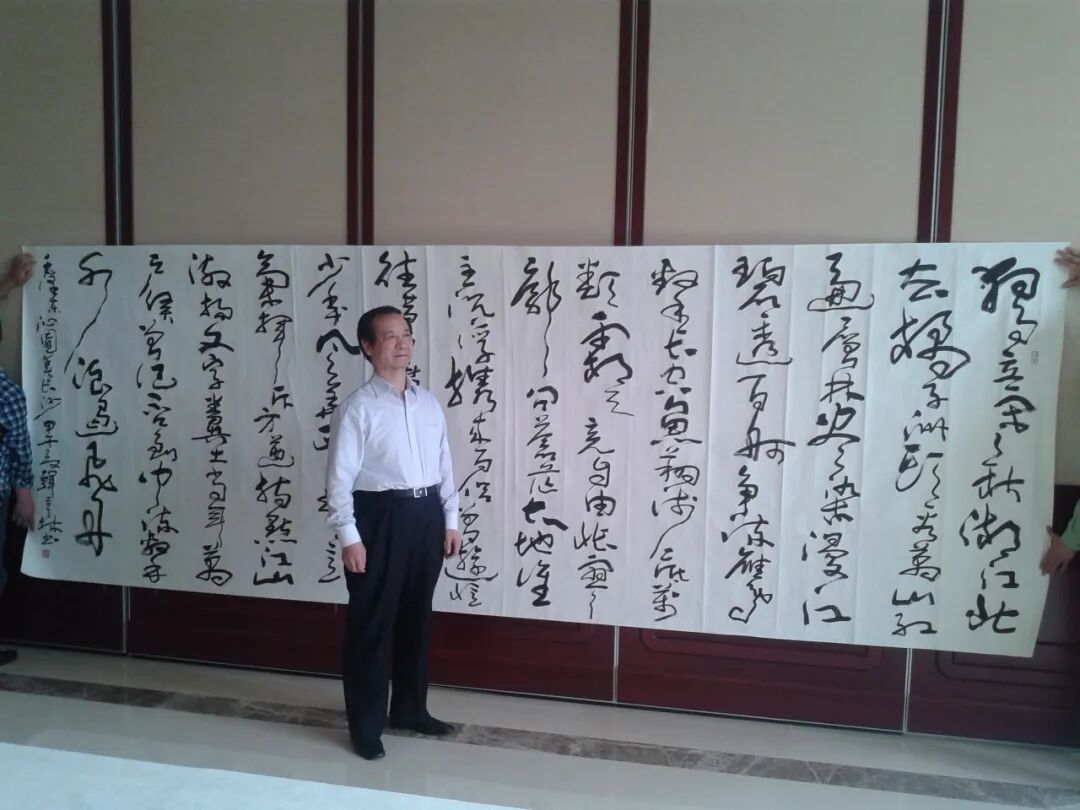 独立寒秋湘江北
去橘子洲头看万山红
遍层林尽染漫江
碧透百舸争流鹰
擊长空鱼翔浅底万
類霜天竞自由怅寥
廓问苍茫大地谁
主沉浮携来百侣曾游忆
往昔
少年风华正茂书生意
氣挥斥方遒指點江山
激扬文字糞土当年萬
户侯曾记否到中流擊
水浪遏飞舟
毛泽东沁园春长沙甲午